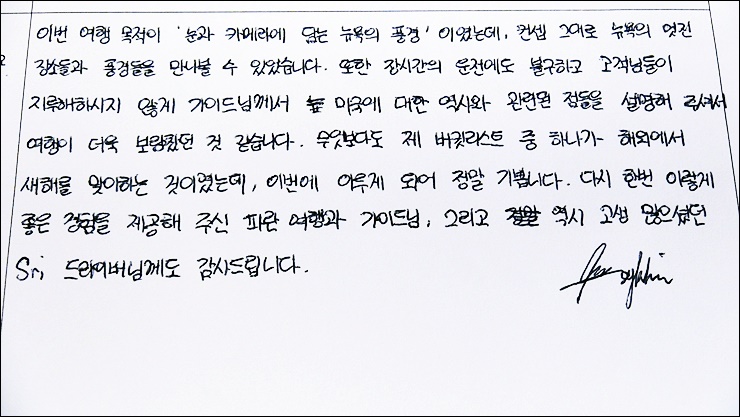 이번 여행 목적이 '눈과 카메라에 담는 뉴욕의 풍경'이었는데, 컨셉 그대로 뉴욕의 멋진
장소들과 풍경들을 만나볼 수 있었습니다. 또한 장시간의 운전에도 불구하고 고객님들이
지루해하시지 않게 가이드님께서 미국에 대한 역사와 관련된 점들을 설명해 주셔서
여행이 더욱 보람찼던 것 같습니다. 무엇보다도 제 버킷리스트 중 하나가 해외에서
새해를 맞이하는 것이였는데, 이번에 이루게 되어 정말 기쁩니다. 다시 한번 이렇게
좋은 경험을 제공해 주신 파란 여행과 가이드님, 그리고 역시 고생 많으셨던
Sri 드라이버님께도 감사드립니다.